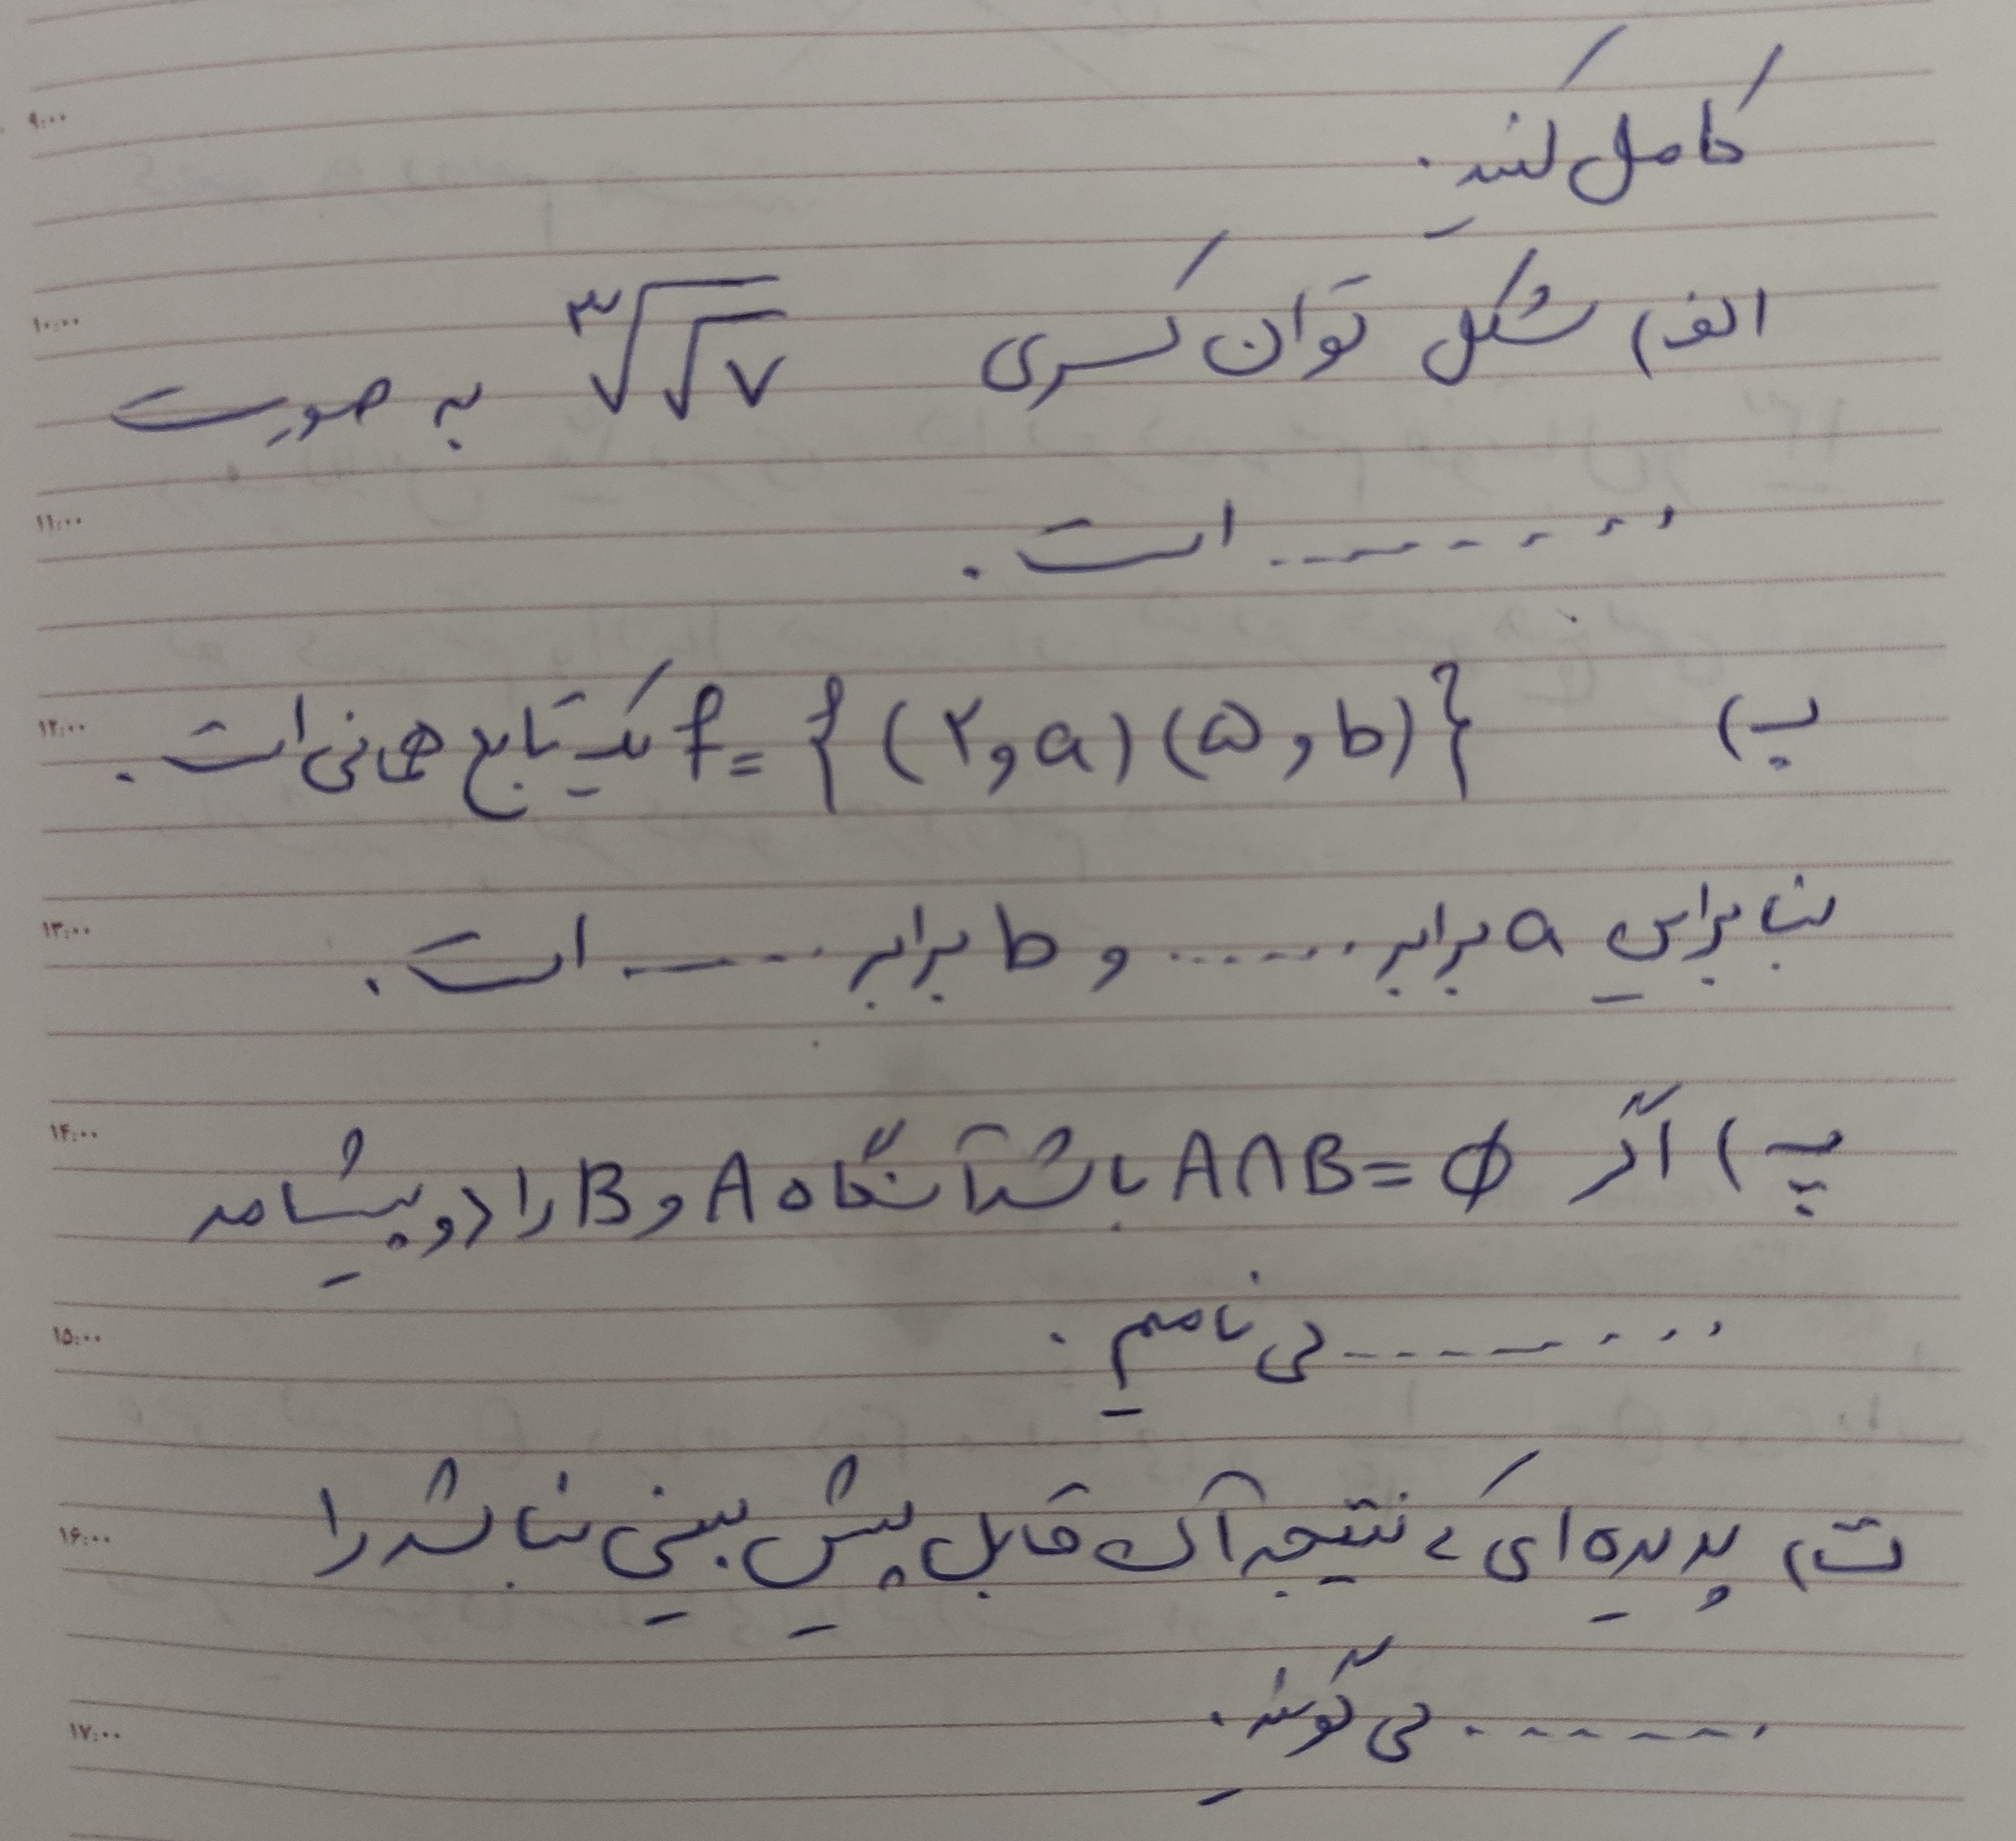 کامل کنید.
الف) شکل توان کسری ∛√۷ به صورت
........ است.
ب) f = {(۲,a)(۵,b)} یک تابع همانی است.
بنابراین a برابر ...... و b برابر ...... است.
پ) اگر A∩B=∅ باشد آنگاه A و B را دو پیشامد
........ می نامیم.
ت) پدیده ای که نتیجه آن قابل پیش بینی نباشد را
....... می گویند.
۹:۰۰
۱۰:۰۰
۱۱:۰۰
۱۲:۰۰
۱۳:۰۰
۱۴:۰۰
۱۵:۰۰
۱۶:۰۰
۱۷:۰۰